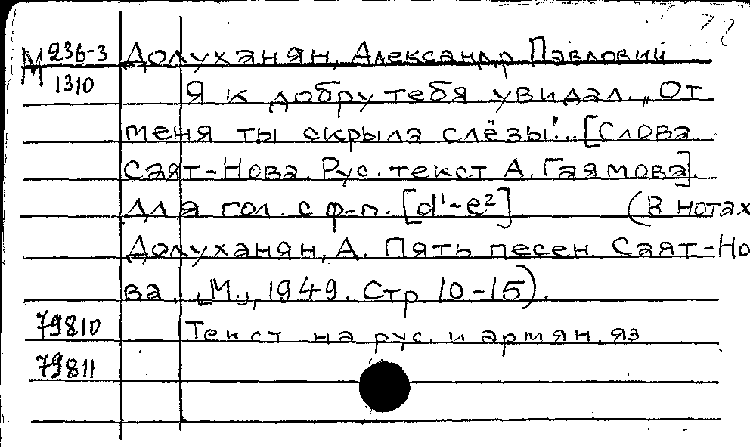 М 236-3 Долуханян, Александр Павлович
1310 Я к добру тебя увидал. „От
меня ты скрыла слёзы". [Слова
Саят-Нова. Рус. текст А. Гаямова].
Для гол. с ф-п. [d¹-e²] (В нотах
Долуханян, А. Пять песен Саят-Но
ва. [М.], 1949. Стр. 10-15).
79810 Текст на рус. и армян. яз
79811